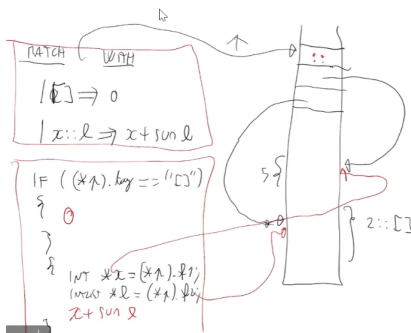 MATCH WITH
| [] ⇒ 0
| x::l ⇒ x + sun l
IF ((*r).key == "[]")
{
0
}
{
INT *x = (*r).fr;
*l = (*r).
x + sun l
}
::
5 {
} 2::[]